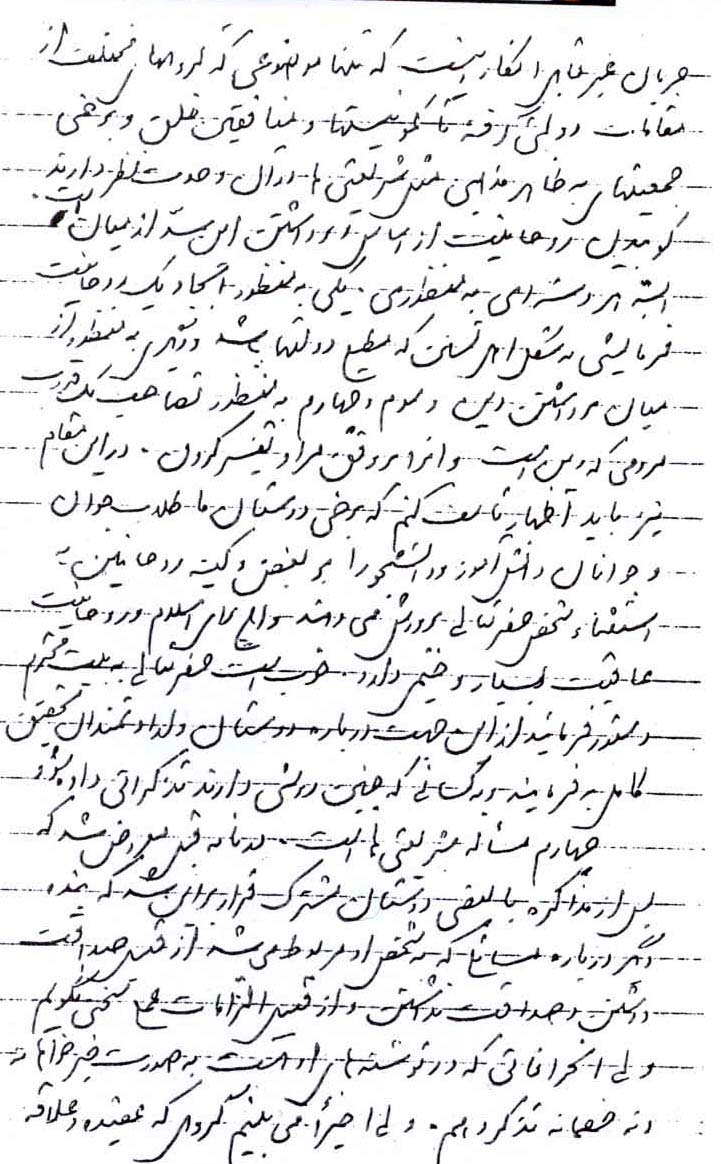 جریان غیر قابل انکار اینست که تنها موضوعی که گروههای مختلف از
مقامات دولتی گرفته تا کمونیستها و منافقین خلق و برخی
جمعیتهای به ظاهر مذهبی مثل شریعتی ها در آن وحدت نظر دارند
کوبیدن روحانیت از اساس و برداشتن این سد از میان است.
البته هر دسته ای به منظوری. یکی به منظور ایجاد یک روحانیت
فرمایشی به شکل اهل تسنن که مطیع دولتها باشد و دیگری به منظور از
میان برداشتن دین و سوم و چهارم به منظور تصاحب یک قدرت
مردمی که دین است و آنرا بر وفق مراد تفسیر کردن. در این مقام
نیز باید اظهار تأسف کنم که برخی دوستان ما طلاب جوان
و جوانان دانش آموز و دانشجو را بر بغض و کینه روحانیین به
استثناء شخص حضرتعالی پرورش می دهند و این برای اسلام و روحانیت
عاقبت بسیار وخیمی دارد. خوب است حضرتعالی به بیت محترم
دستور فرمائید از این جهت درباره دوستان و ارادتمندان تحقیق
کامل به فرمایند و به کسانی که چنین روشی دارند تذکراتی داده شود
چهارم مسأله شریعتی ها است. در نامه قبل معروض شد که
پس از مذاکره با بعضی دوستان مشترک قرار بر این شد که بنده
دیگر درباره مسائلی که به شخص او مربوط می شد از قبیل صداقت
داشتن و صداقت نداشتن و از قبیل التزامات عملی سخنی نگویم
ولی انحرافاتی که در نوشته های او هست به صورت خیرخواهانه
و نه خصمانه تذکر دهم. ولی اخیراً می بینم گروهی که عقیده و علاقه